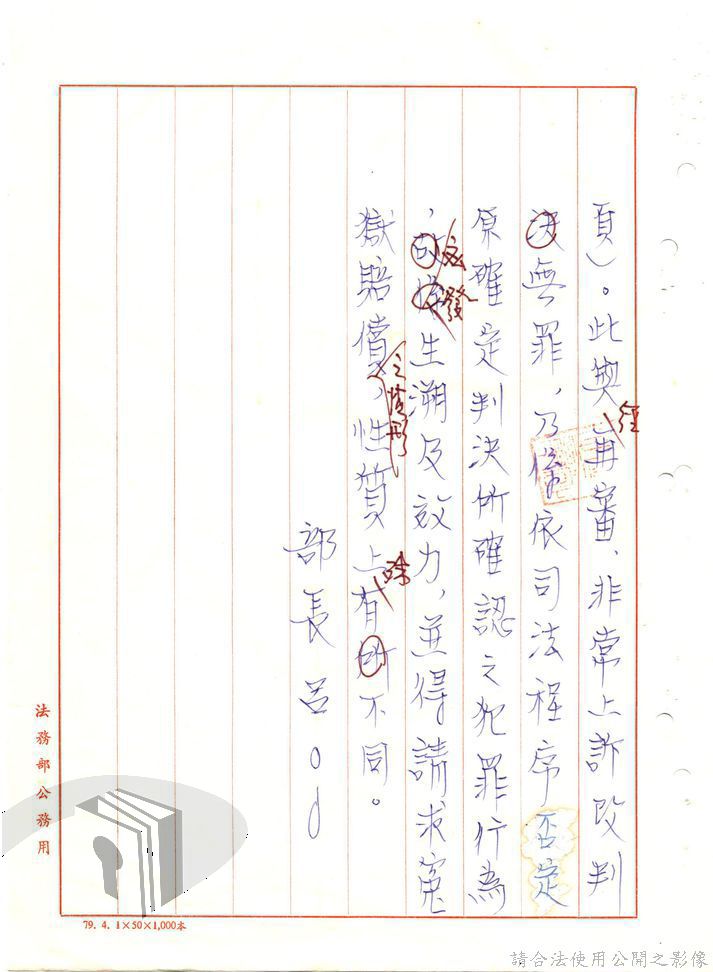 頁)。此與經再審、非常上訴改判
決無罪,乃係依司法程序否定
原確定判決所確認之犯罪行為
,故發生溯及效力,並得請求冤
獄賠償之情形,性質上有殊所不同。
部長呂○○
法務部公務用
79. 4. 1×50×1,000本
請合法使用公開之影像